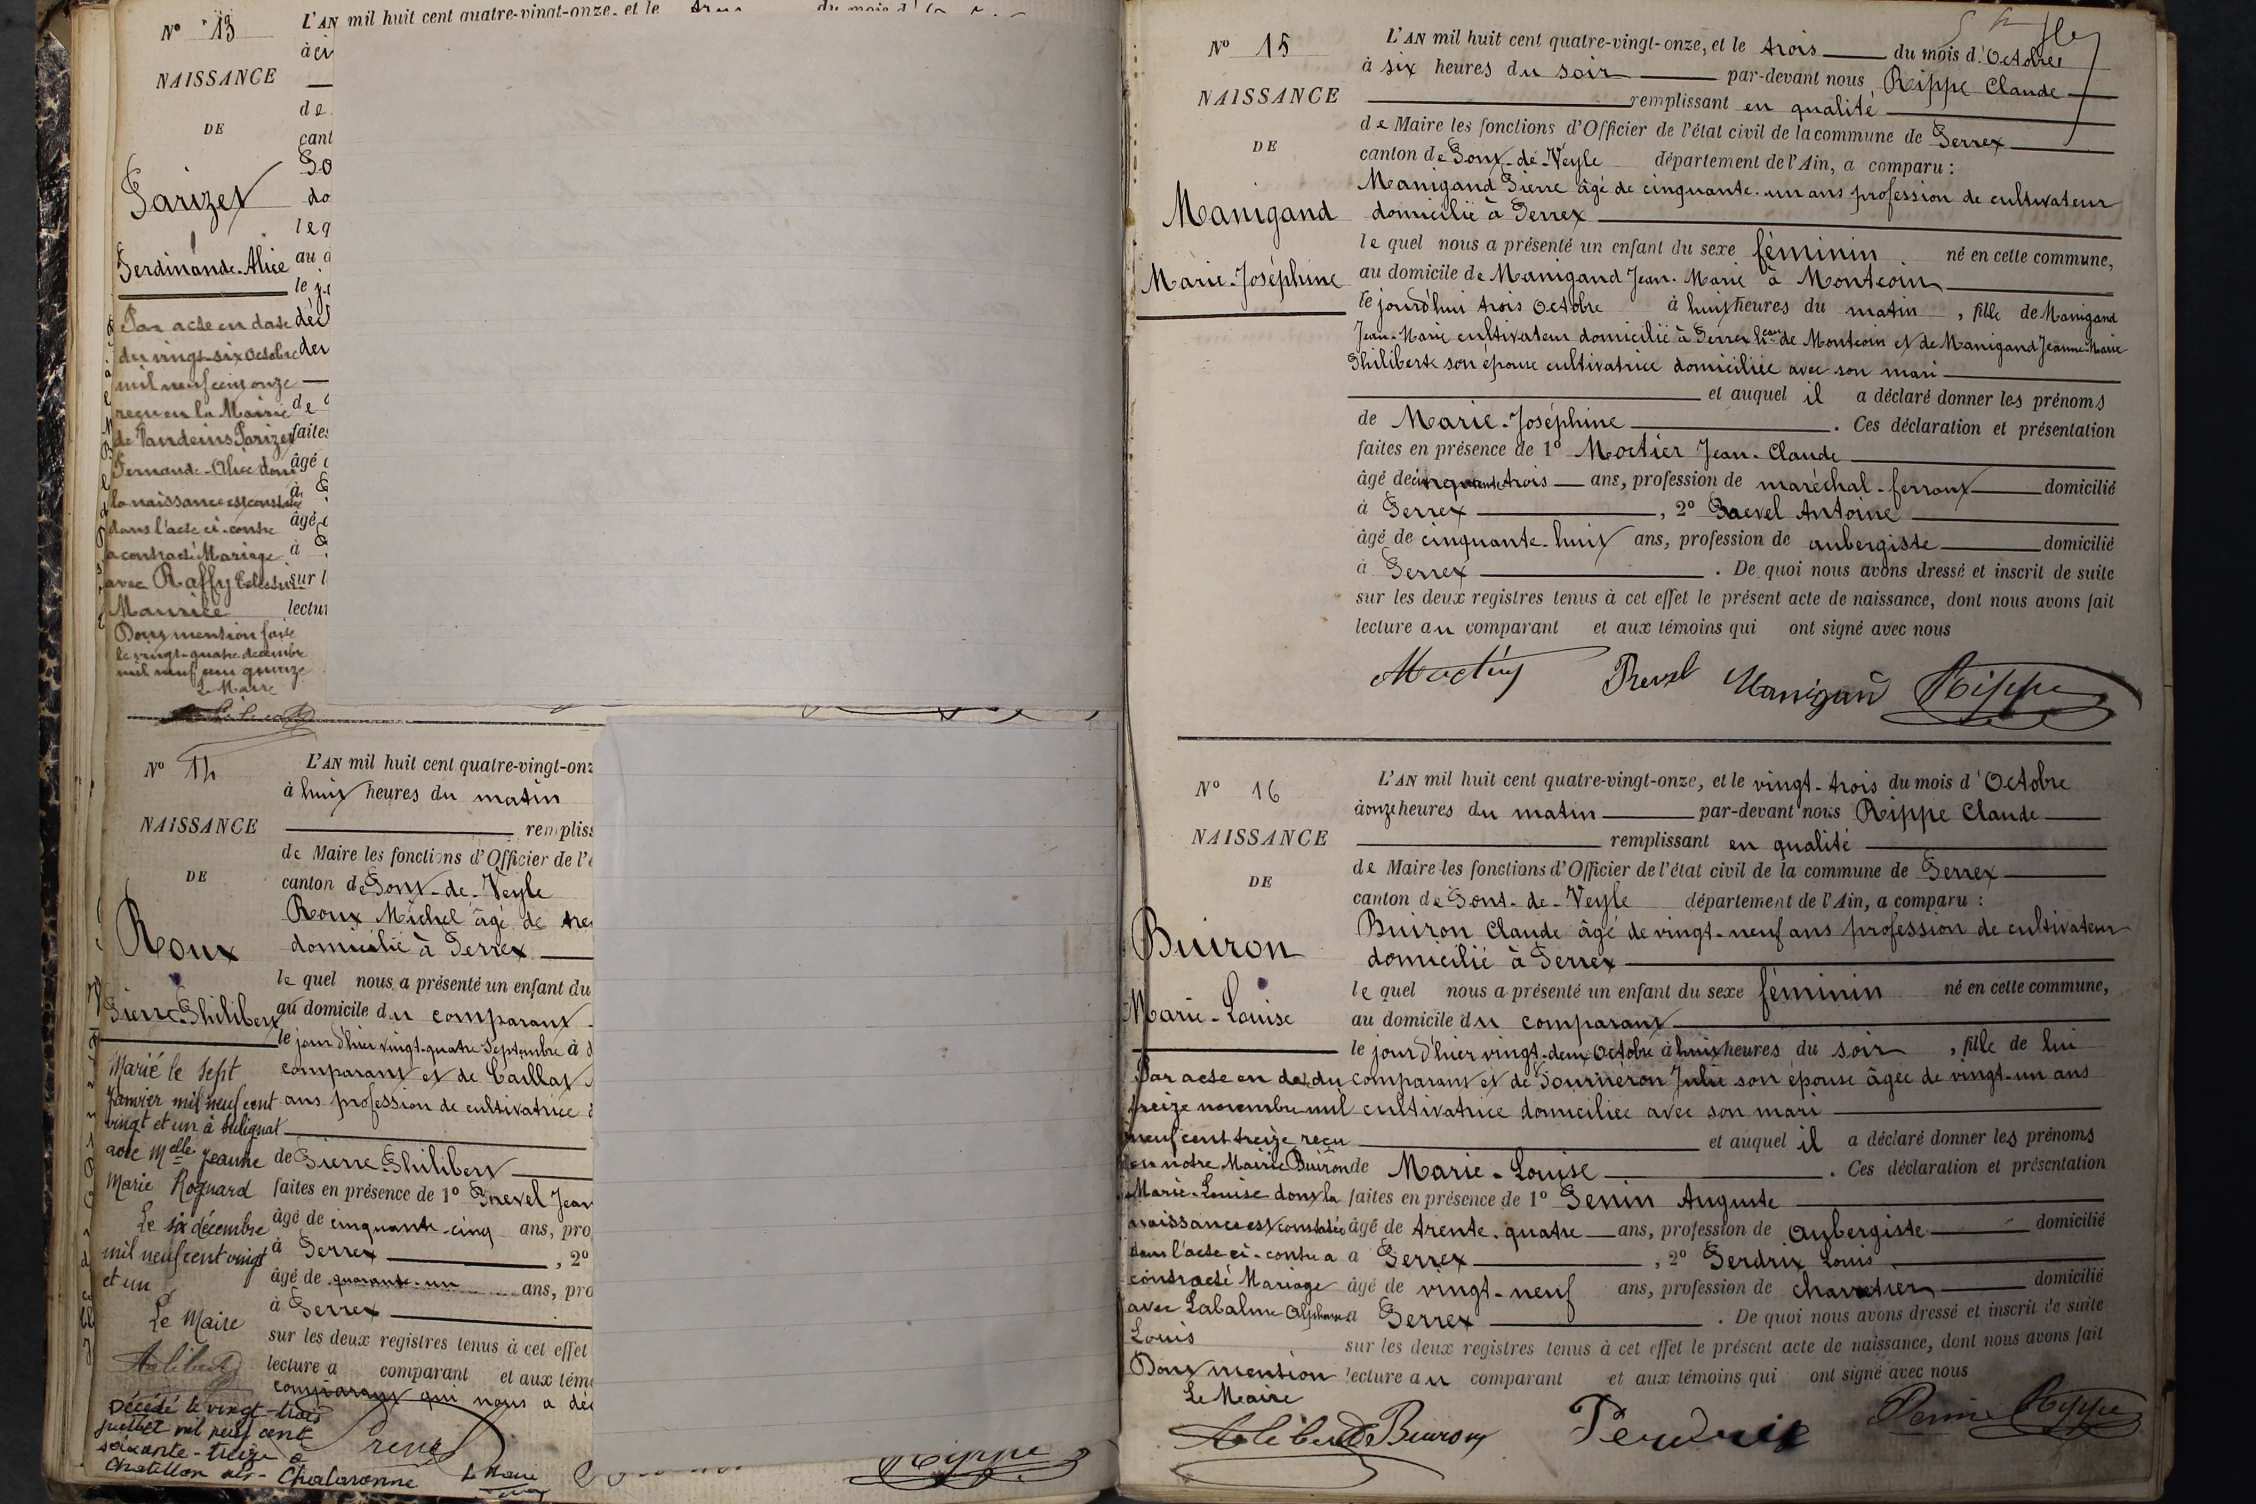 N° 13
L'AN mil huit cent quatre-vingt-onze, et le
du mois d'
NAISSANCE
DE
cant
Parizet
do
leq
Ferdinande-Alice
au d
Par acte en date
du vingt-six Octobre
mil neuf cent onze
reçu en la Mairie
de Vandeins Parizet
Fernande-Alice dont
la naissance est constatée
dans l'acte ci-contre
a contracté Mariage
avec Raffy Célestin
Maurice
Dont mention faite
le vingt-quatre décembre
mil neuf cent quinze
Le Maire
de
faites
âgé
à
âgé
à
sur l
lectur
N° 14
L'AN mil huit cent quatre-vingt-onz
à huit heures du matin
NAISSANCE
rempliss
de Maire les fonctions d'Officier de l'é
DE
canton de Pont-de-Veyle
Roux Michel âgé de tre
Roux
domicilié à Perrex
le quel nous a présenté un enfant du
Pierre-Philibert
au domicile du comparant
le jour d'hier vingt-quatre Septembre à d
comparant et de Caillat
ans profession de cultivatrice
de Pierre-Philibert
faites en présence de 1° Prevel Jean
âgé de cinquante-cinq ans, pro
à Perrex , 2°
âgé de quarante-un ans, pro
à Perrex
sur les deux registres tenus à cet effet
lecture a comparant et aux tém
comparant qui nous a dé
Marié le sept
Janvier mil neuf cent
vingt et un à Bulignat
avec Melle Jeanne
Marie Roguard
Le six décembre
mil neuf cent vingt
et un
Le Maire
Décédé le vingt-trois
juillet mil neuf cent
soixante-treize à
Chatillon sur-Chalaronne
Le Maire
Rippe
N° 15
L'AN mil huit cent quatre-vingt-onze, et le trois du mois d'Octobre
à six heures du soir par-devant nous Rippe Claude
NAISSANCE
remplissant en qualité
de Maire les fonctions d'Officier de l'état civil de la commune de Perrex
DE
canton de Pont-de-Veyle département de l'Ain, a comparu :
Manigand Pierre âgé de cinquante-un ans profession de cultivateur
Manigand
domicilié à Perrex
le quel nous a présenté un enfant du sexe féminin né en cette commune,
Marie-Joséphine
au domicile de Manigand Jean-Marie à Montcoin
le jourd'hui trois Octobre à huit heures du matin , fille de Manigand
Jean-Marie cultivateur domicilié à Perrex hau de Montcoin et de Manigand Jeanne-Marie
Philiberte son épouse cultivatrice domiciliée avec son mari
et auquel il a déclaré donner les prénoms
de Marie-Joséphine . Ces déclaration et présentation
faites en présence de 1° Moctier Jean-Claude
âgé de trois ans, profession de maréchal-ferrant domicilié
à Perrex , 2° Prevel Antoine
âgé de cinquante-huit ans, profession de aubergiste domicilié
à Perrex . De quoi nous avons dressé et inscrit de suite
sur les deux registres tenus à cet effet le présent acte de naissance, dont nous avons fait
lecture au comparant et aux témoins qui ont signé avec nous
Moctier Prevel Manigand Rippe
N° 16
L'AN mil huit cent quatre-vingt-onze, et le vingt-trois du mois d'Octobre
à onze heures du matin par-devant nous Rippe Claude
NAISSANCE
remplissant en qualité
de Maire les fonctions d'Officier de l'état civil de la commune de Perrex
DE
canton de Pont-de-Veyle département de l'Ain, a comparu :
Buiron Claude âgé de vingt-neuf ans profession de cultivateur
Buiron
domicilié à Perrex
le quel nous a présenté un enfant du sexe féminin né en cette commune,
Marie-Louise
au domicile du comparant
le jour d'hier vingt-deux Octobre à huit heures du soir , fille de lui
comparant et de Journeron Julie son épouse âgée de vingt-un ans
cultivatrice domiciliée avec son mari
et auquel il a déclaré donner les prénoms
de Marie-Louise . Ces déclaration et présentation
faites en présence de 1° Penin Auguste
âgé de trente-quatre ans, profession de aubergiste domicilié
à Perrex , 2° Perdrix Louis
âgé de vingt-neuf ans, profession de charretier domicilié
à Perrex . De quoi nous avons dressé et inscrit de suite
sur les deux registres tenus à cet effet le présent acte de naissance, dont nous avons fait
lecture au comparant et aux témoins qui ont signé avec nous
Par acte en date du
treize novembre mil
neuf cent treize reçu
en notre Mairie Buiron
Marie-Louise dont la
naissance est constatée
dans l'acte ci-contre a
contracté Mariage
avec Labalme Alphonse
Louis
Dont mention
Le Maire
Buiron Perdrix Penin Rippe